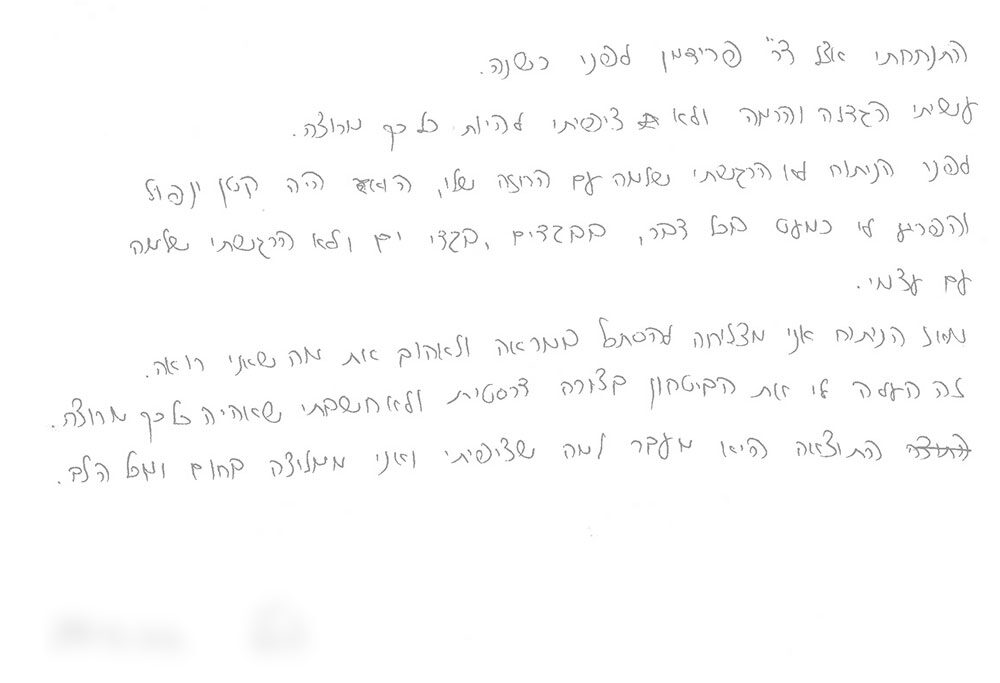 התנתחתי אצל ד"ר פרידמן לפני כשנה.
עשיתי הגדלה והרמה ולא ציפיתי להיות כל כך מרוצה.
לפני הניתוח לא הרגשתי שלמה עם החזה שלי, הוא היה קטן ונפול
והפריע לי כמעט בכל דבר, בבגדים, בגדי ים ולא הרגשתי שלמה
עם עצמי.
מאז הניתוח אני מצליחה להסתכל במראה ולאהוב את מה שאני רואה.
זה העלה לי את הביטחון בצורה דרסטית ולא חשבתי שאהיה כל כך מרוצה.
התוצאה היא מעבר למה שציפיתי ואני ממליצה בחום ומכל הלב.